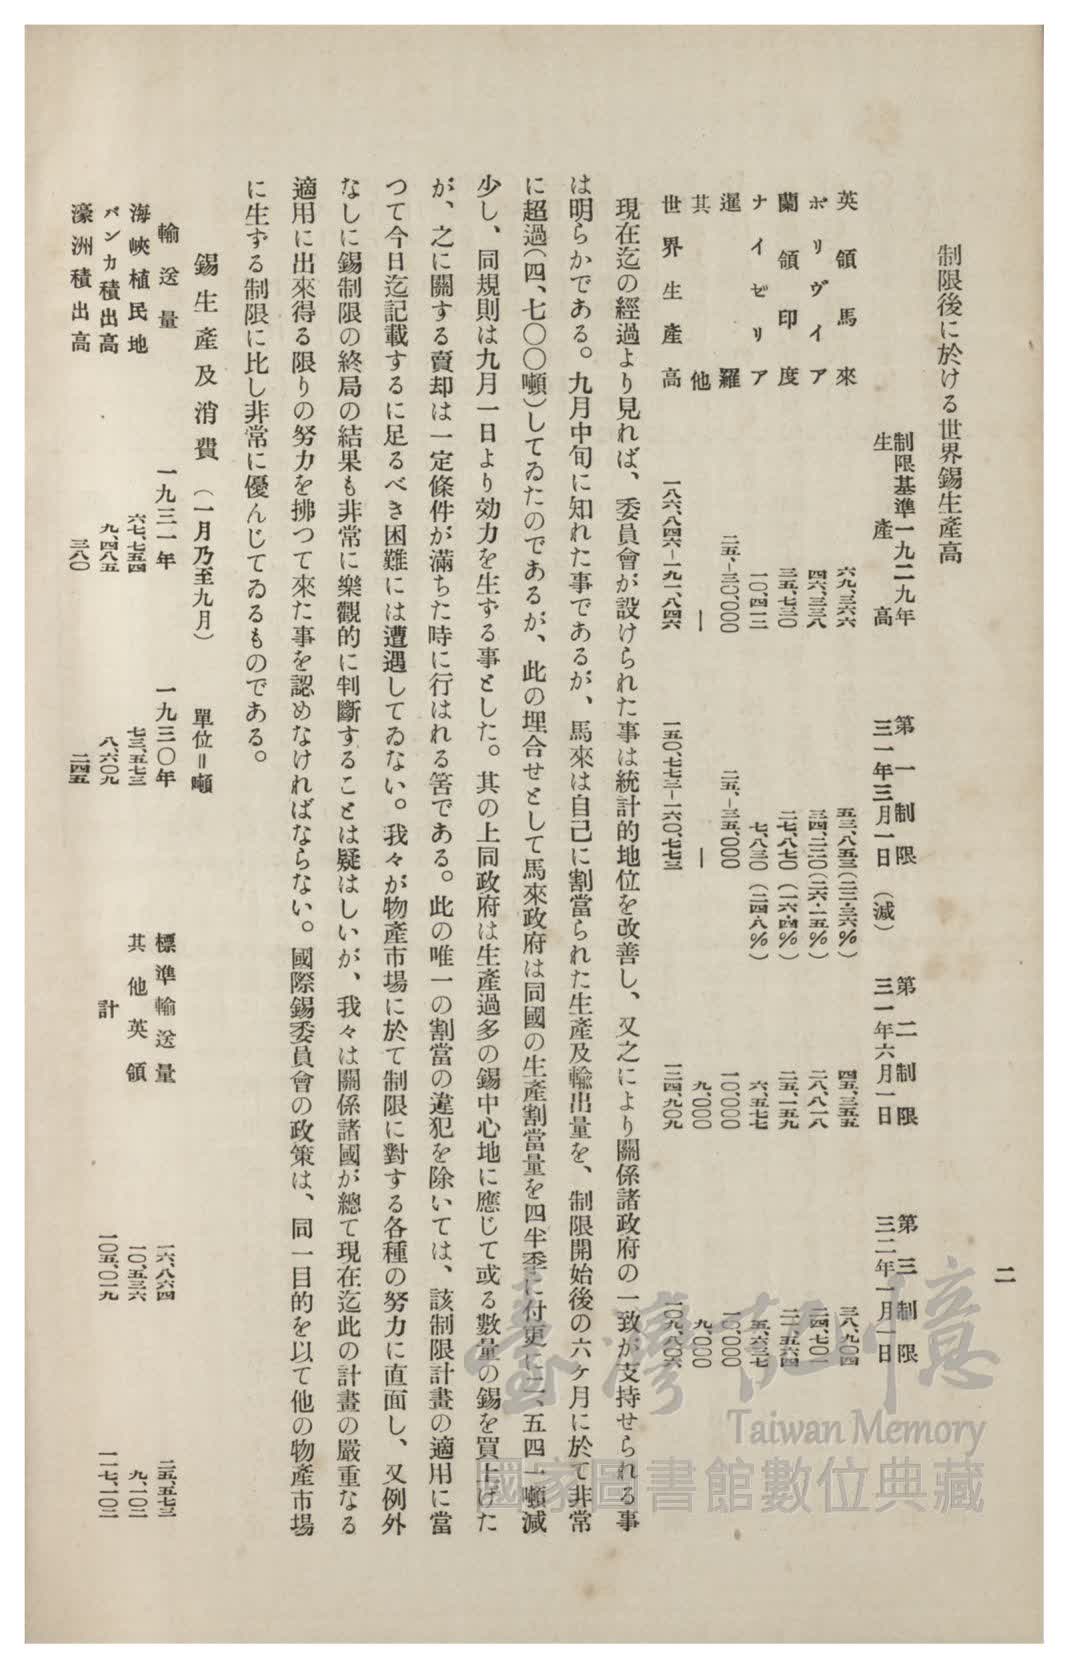 二
制限後に於ける世界錫生產高
制限基準一九二九年　第一制限　第二制限　第三制限
生產高　三一年三月一日（減）　三一年六月一日　三二年一月一日
英領馬來　六九、三六六　五三、八五三（二二・三六％）　四五、三五五　三八、九〇四
ボリヴイア　四六、三三八　三四、二二〇（二六・一五％）　二八、八一八　二四、七〇一
蘭領印度　三五、七三〇　二七、八七〇（一六・四％）　二五、一五九　二一、五六四
ナイゼリア　一〇、四一二　七、八三〇（二四・八％）　六、五七七　五、六三七
暹羅　二五、―三〇、〇〇〇　二五、―三五、〇〇〇　一〇、〇〇〇　一〇、〇〇〇
其他　―　―　九、〇〇〇　九、〇〇〇
世界生產高　一八六、八四六―一九一、八四六　一五〇、七七三―一六〇、七七三　一二四、九〇九　一〇九、八〇六
現在迄の經過より見れば、委員會が設けられた事は統計的地位を改善し、又之により關係諸政府の一致が支持せられる事
は明らかである。九月中旬に知れた事であるが、馬來は自己に割當られた生產及輸出量を、制限開始後の六ケ月に於て非常
に超過（四、七〇〇噸）してゐたのであるが、此の埋合せとして馬來政府は同國の生產割當量を四半季に付更に二、五四一噸減
少し、同規則は九月一日より効力を生ずる事とした。其の上同政府は生產過多の錫中心地に應じて或る數量の錫を買上げた
が、之に關する賣却は一定條件が滿ちた時に行はれる筈である。此の唯一の割當の違犯を除いては、該制限計畫の適用に當
つて今日迄記載するに足るべき困難には遭遇してゐない。我々が物產市場に於て制限に對する各種の努力に直面し、又例外
なしに錫制限の終局の結果も非常に樂觀的に判斷することは疑はしいが、我々は關係諸國が總て現在迄此の計畫の嚴重なる
適用に出來得る限りの努力を拂つて來た事を認めなければならない。國際錫委員會の政策は、同一目的を以て他の物產市場
に生ずる制限に比し非常に優んじてゐるものである。
錫生產及消費（一月乃至九月）　單位＝噸
輸送量　一九三一年　一九三〇年　標準輸送量　一六、八六四　二五、五七三
海峽植民地　六七、七五四　七三、五七三　其他英領　一〇、五三六　九、一〇二
バンカ積出高　九、四八五　八、六〇九　計　一〇五、〇一九　一一七、一〇二
濠洲積出高　三八〇　二四五
臺灣記憶
Taiwan Memory
國家圖書館數位典藏